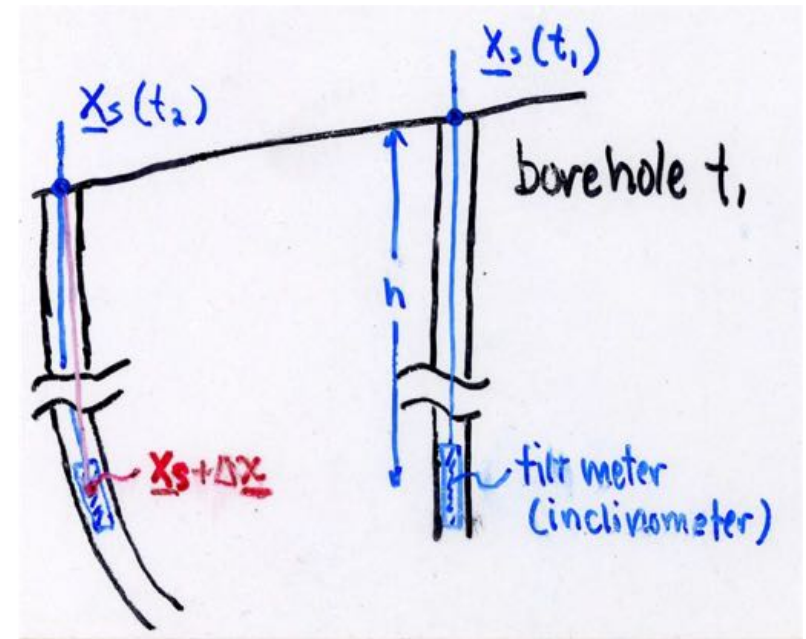 X_s(t₁)
X_s(t₂)
borehole t₁
h
X_s+Δx
tilt meter
(inclinometer)